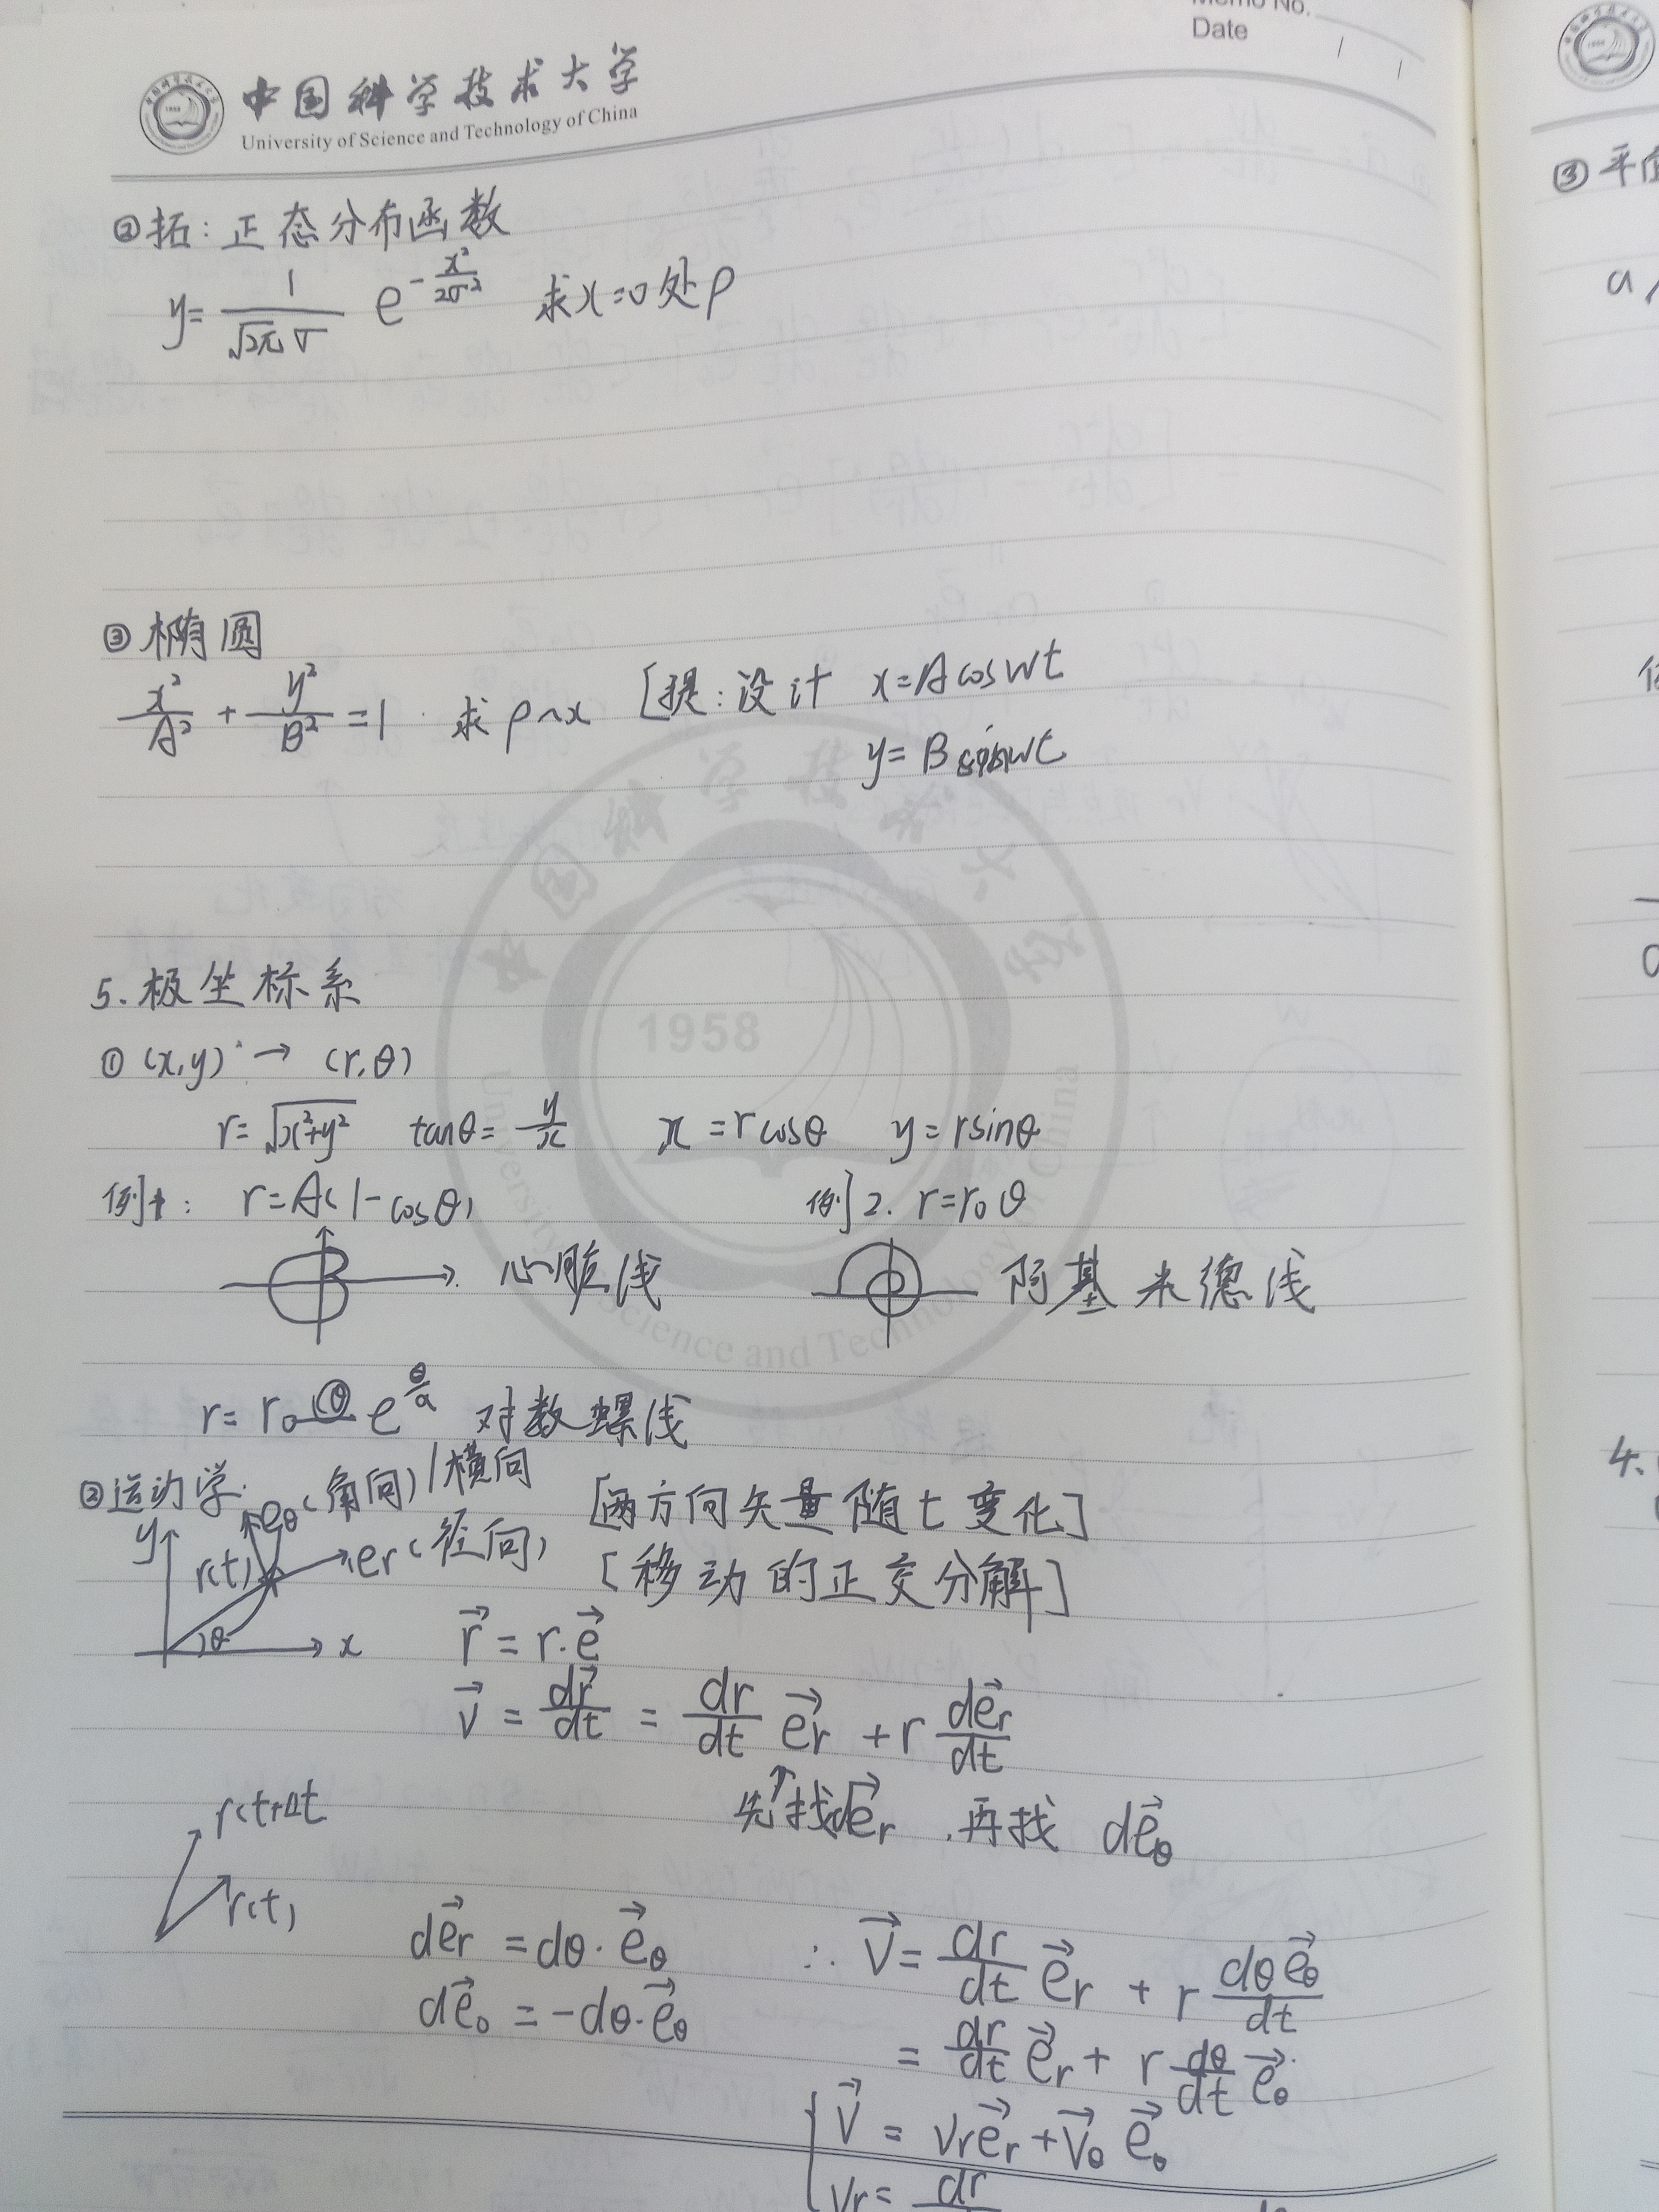 Memo No.
Date
中国科学技术大学
University of Science and Technology of China
②拓：正态分布函数
y = 1/(√2π σ) e^(-x²/2σ²) 求x=0处ρ
③椭圆
x²/A² + y²/B² = 1 求ρ~x [提：设计 x=Acoswt
y=Bsinwt
5.极坐标系
①(x,y) → (r,θ)
r=√x²+y² tanθ=y/x x=rcosθ y=rsinθ
例1: r=A(1-cosθ) 例2. r=r₀θ
心脏线 阿基米德线
r=r₀ e^(θ/a) 对数螺线
②运动学.
eθ(角向)/横向 [两方向矢量随t变化]
y r(t) er(径向) [移动的正交分解]
θ x r⃗ = r·e⃗
v⃗ = dr⃗/dt = dr/dt e⃗r + r de⃗r/dt
先找de⃗r,再找 de⃗θ
r(t+Δt
r(t)
de⃗r = dθ·e⃗θ ∴ v⃗ = dr/dt e⃗r + r dθe⃗θ/dt
de⃗θ = -dθ·e⃗θ
= dr/dt e⃗r + r dθ/dt e⃗θ
v⃗ = vre⃗r + v⃗θ e⃗θ
vr = dr
1958
University of Science and Technology of China
中国科学技术大学
③平
a
例
4.